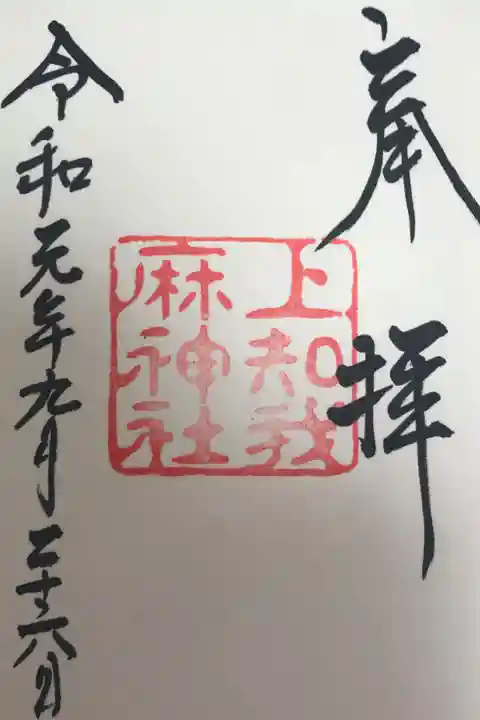 奉拝
上知我
麻神社
令和元年九月二十六日